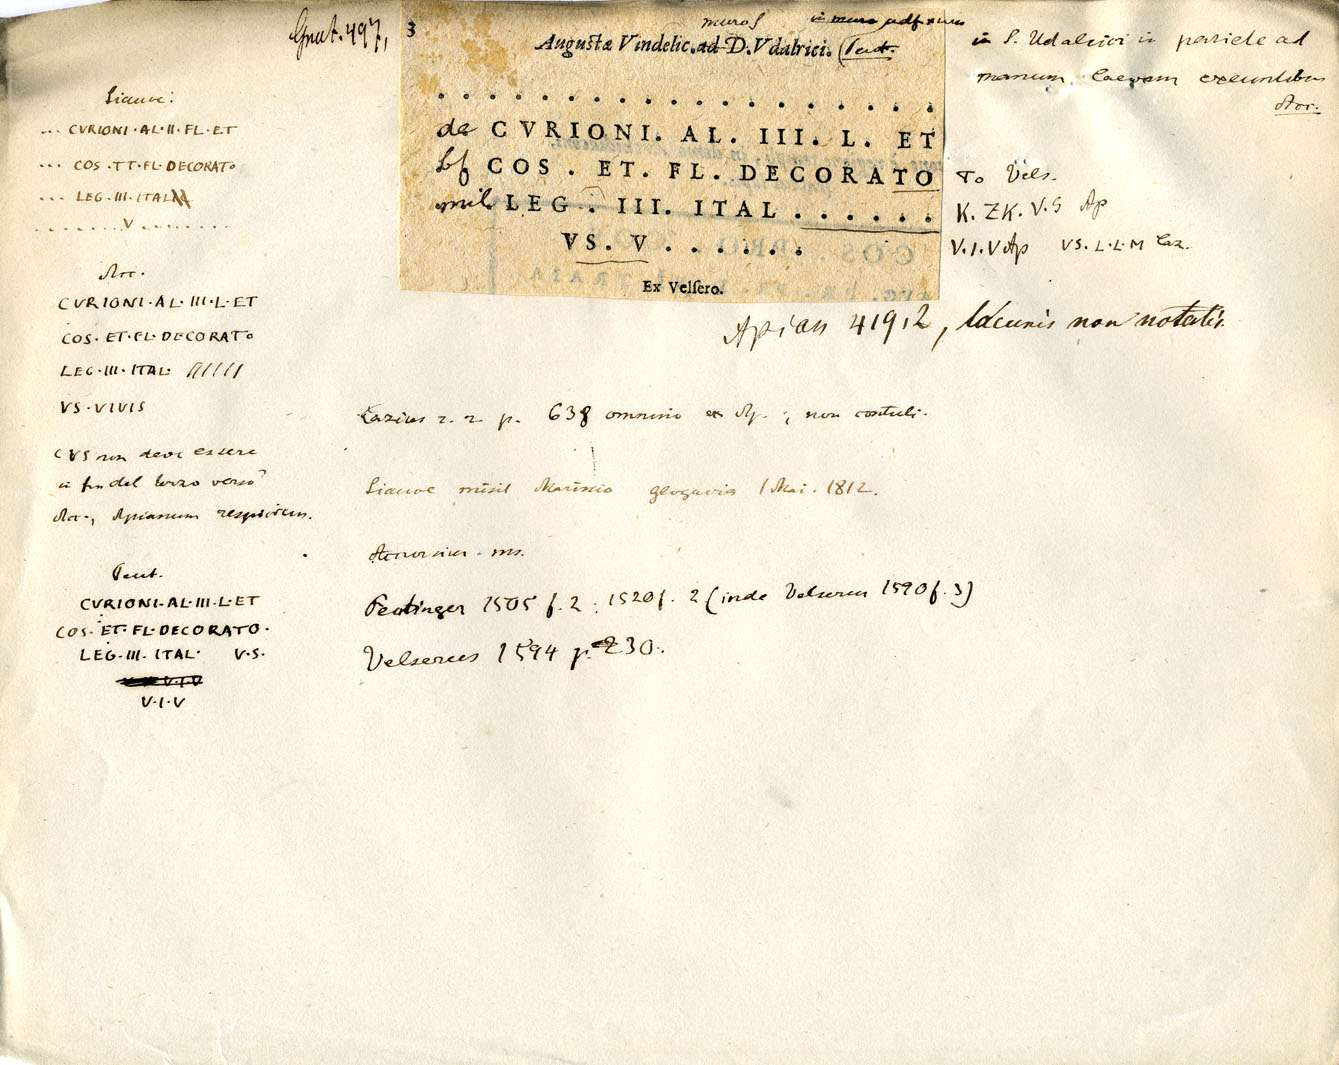 Grut. 497,
3
muros
Augustæ Vindelic. ad D. Vdalrici. (Peut.
in S. Udalrici in pariete ad
manum laevam exeuntibus
Acc.
. . . . . . . . . . . . . . . . . . .
de CVRIONI. AL. III. L. ET
bf COS . ET. FL. DECORATO
mil LEG . III. ITAL . . . . . .
VS. V . . . . . .
Ex Velsero.
TO Vels.
K. ZK. V.S Ap
V.I.V Ap VS. L. L. M Laz.
Apian 419,2, lacunis non notatis.
... CVRIONI·AL·II·FL·ET
... COS·TT·FL·DECORATO
... LEG·III·ITAL
. . . . . . . . . V . . . . . . . . .
Acc.
CVRIONI·AL·III·L·ET
COS·ET·FL·DECORATO
LEG·III·ITAL· /////
VS·VIVIS
VS non deve essere
in fin del terzo verso
Acc., Apianum respiciens.
Peut.
CVRIONI·AL·III·L·ET
COS·ET·FL·DECORATO·
LEG·III·ITAL· V·S·
V·I·V
Lazius r. r. p. 638 omnino ex Ap.; non contuli.
misit Marinio 1 Mai. 1812.
Accursius ms.
Peutinger 1505 f. 2; 1520 f. 2 (inde Velserus 1590 f. 3)
Velserus 1594 p. 230.